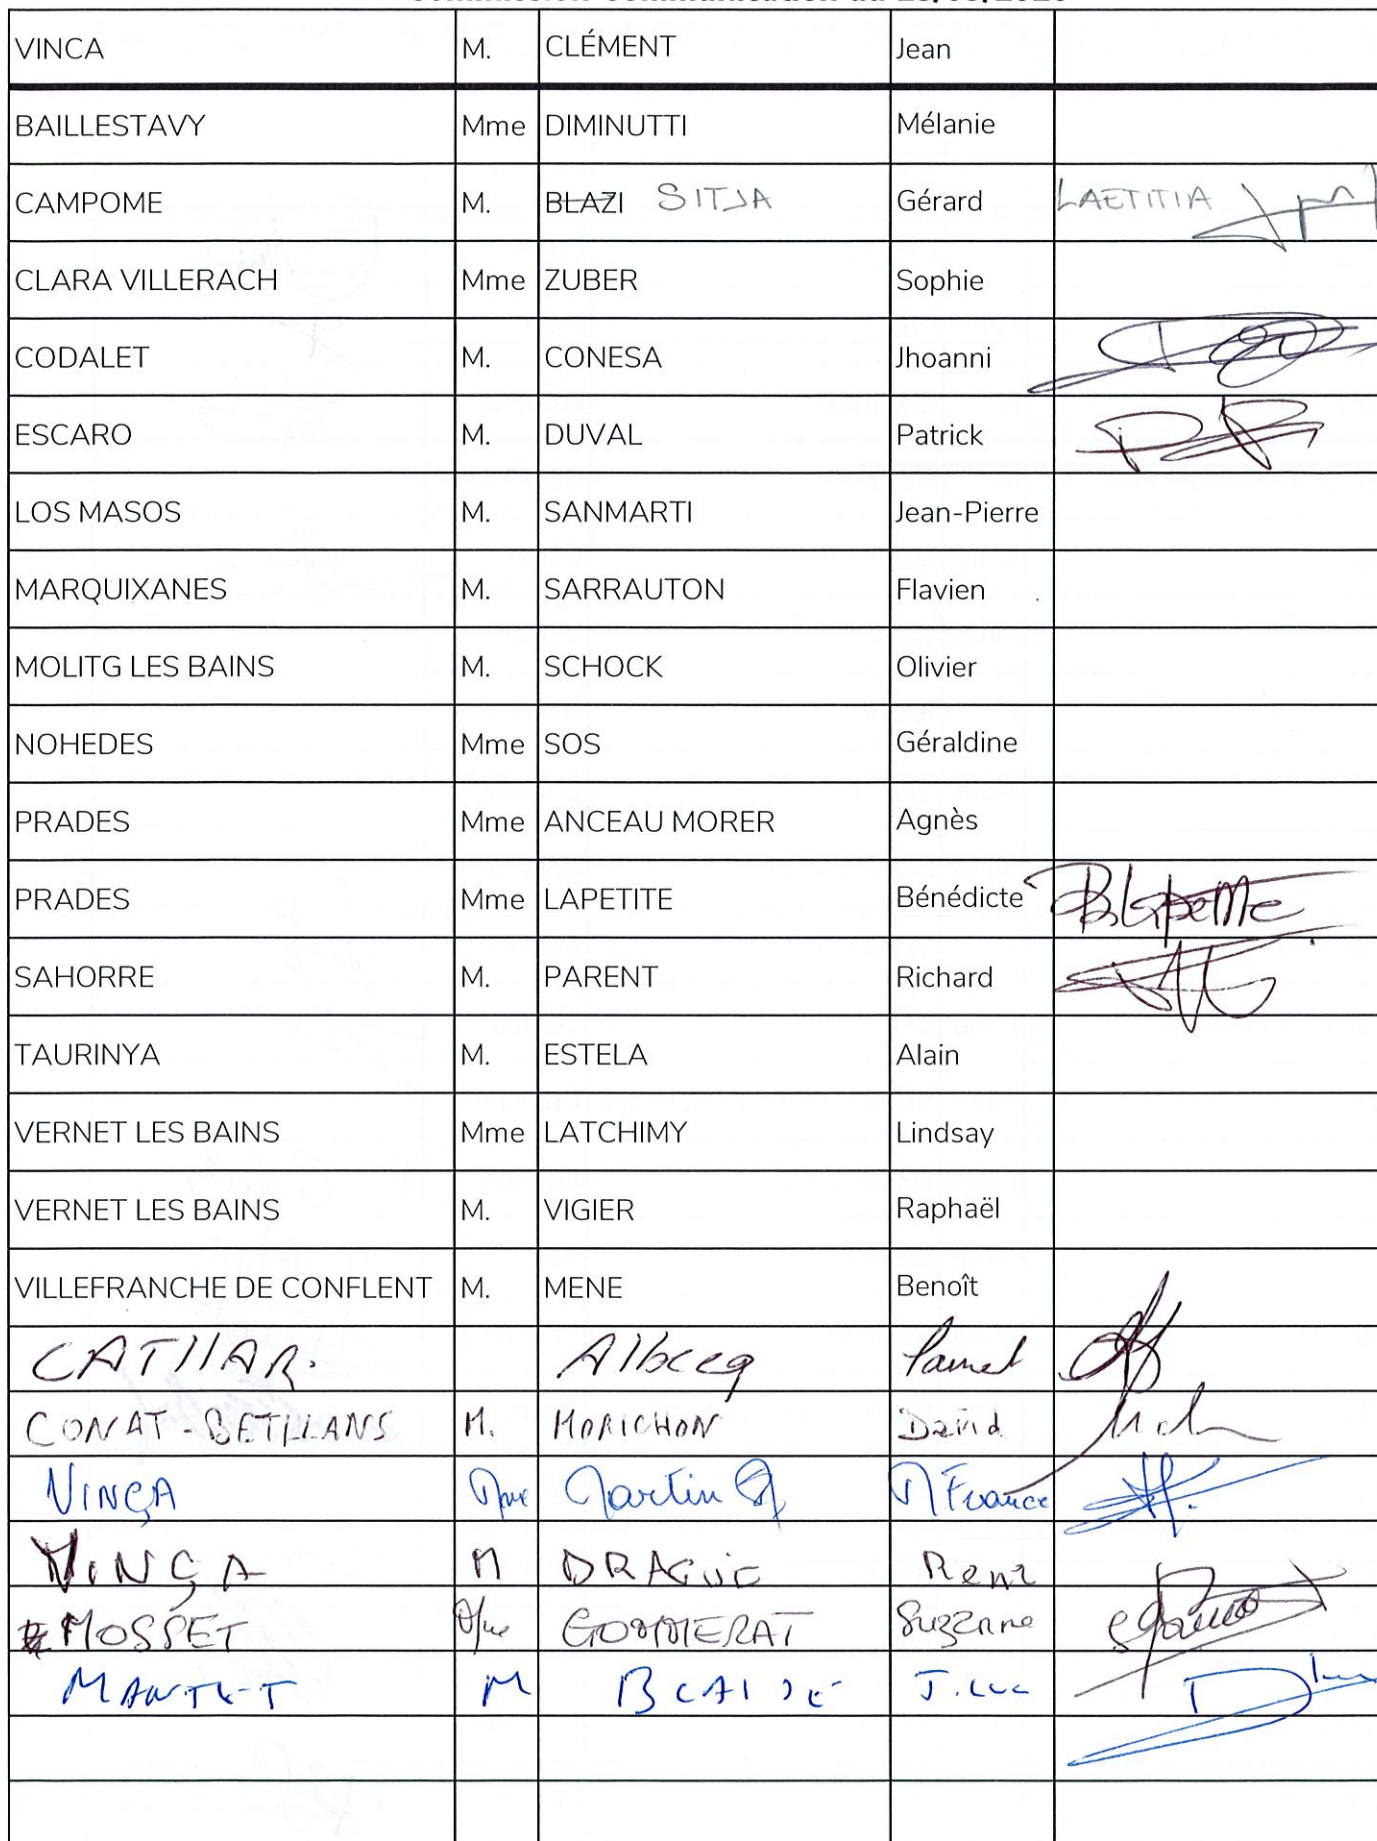 VINCA M. CLÉMENT Jean
BAILLESTAVY Mme DIMINUTTI Mélanie
CAMPOME M. BLAZI SITJA Gérard LAETITIA
CLARA VILLERACH Mme ZUBER Sophie
CODALET M. CONESA Jhoanni
ESCARO M. DUVAL Patrick
LOS MASOS M. SANMARTI Jean-Pierre
MARQUIXANES M. SARRAUTON Flavien
MOLITG LES BAINS M. SCHOCK Olivier
NOHEDES Mme SOS Géraldine
PRADES Mme ANCEAU MORER Agnès
PRADES Mme LAPETITE Bénédicte B. Lapetite
SAHORRE M. PARENT Richard
TAURINYA M. ESTELA Alain
VERNET LES BAINS Mme LATCHIMY Lindsay
VERNET LES BAINS M. VIGIER Raphaël
VILLEFRANCHE DE CONFLENT M. MENE Benoît
CATllAR.
CONAT-BETLLANS M. MORICHON David
VINÇA Mme Martin M France
VINÇA M
MOSSET Mme GOMMERAT Suzanne
MANTET M J.Luc